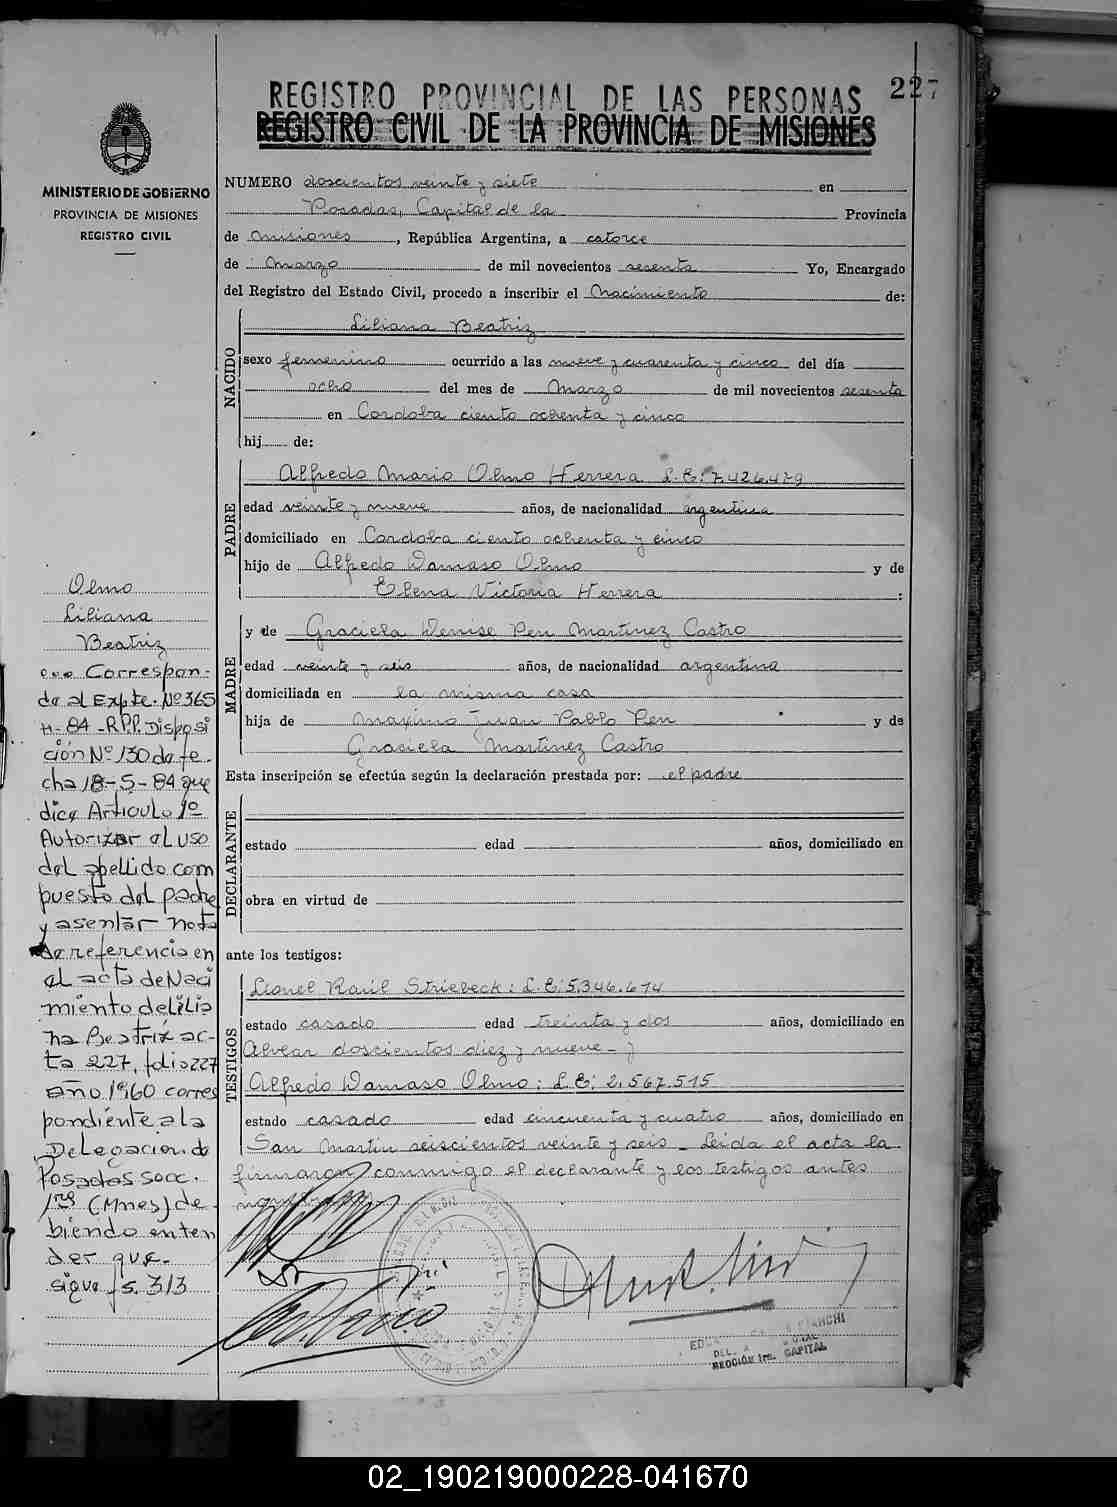 227
REGISTRO PROVINCIAL DE LAS PERSONAS
REGISTRO CIVIL DE LA PROVINCIA DE MISIONES
MINISTERIO DE GOBIERNO
PROVINCIA DE MISIONES
REGISTRO CIVIL
NUMERO doscientos veinte y siete en
Posadas, Capital de la Provincia
de Misiones, República Argentina, a catorce
de Marzo de mil novecientos sesenta Yo, Encargado
del Registro del Estado Civil, procedo a inscribir el Nacimiento de:
NACIDO
Liliana Beatriz
sexo femenino ocurrido a las nueve y cuarenta y cinco del día
ocho del mes de Marzo de mil novecientos sesenta
en Cordoba ciento ochenta y cinco
hij de:
PADRE
Alfredo Mario Olmo Herrera L.E: 7.426.479
edad veinte y nueve años, de nacionalidad argentina
domiciliado en Cordoba ciento ochenta y cinco
hijo de Alfredo Damaso Olmo y de
Elena Victoria Herrera :
MADRE
y de Graciela Denise Pen Martinez Castro
edad veinte y seis años, de nacionalidad argentina
domiciliada en la misma casa
hija de Maximo Juan Pablo Pen y de
Graciela Martinez Castro
Esta inscripción se efectúa según la declaración prestada por: el padre
DECLARANTE
estado edad años, domiciliado en
obra en virtud de
ante los testigos:
TESTIGOS
Lionel Raúl Striebeck: L.E: 5.346.614
estado casado edad treinta y dos años, domiciliado en
Alvear doscientos diez y nueve - y
Alfredo Damaso Olmo: L.E: 2.567.515
estado casado edad cincuenta y cuatro años, domiciliado en
San Martin seiscientos veinte y seis - Leida el acta la
firmaron conmigo el declarante y los testigos antes
Olmo
Liliana
Beatriz
Correspon-
de al Expte. Nº 365
H-84-R.P.P. Disposi
ción Nº 130 de fe-
cha 18-5-84 que
dice Artículo 1º
Autorizar el uso
del apellido com
puesto del padre
y asentar nota
de referencia en
el acta de Naci
miento de Lilia
na Beatriz ac-
ta 227, folio 227
año 1960 corres
pondiente a la
Delegacion de
Posadas secc.
1ra (Mnes) de-
biendo enten
der que-
sigue fs. 313
SECCIÓN 1ra. CAPITAL
02_190219000228-041670